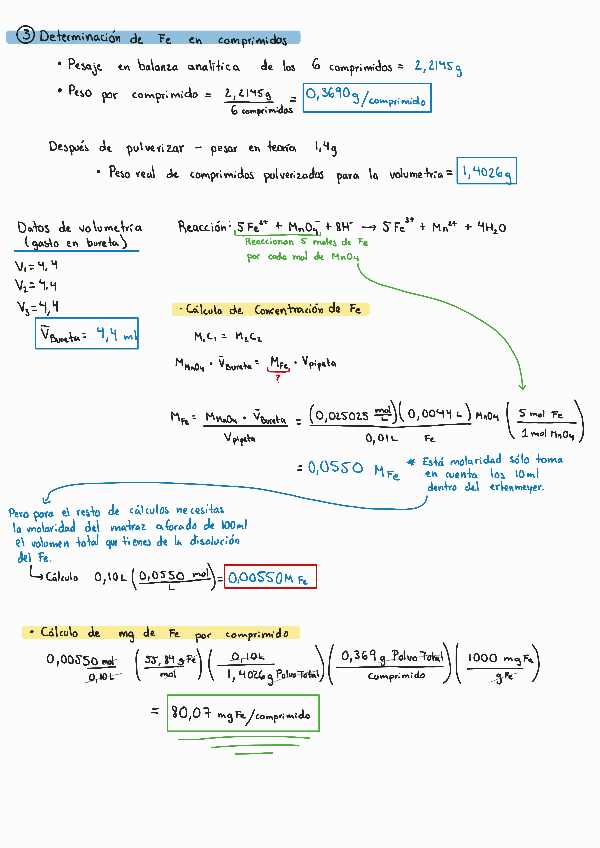 ③ Determinación de Fe en comprimidos
• Pesaje en balanza analítica de los 6 comprimidos = 2,2145g
• Peso por comprimido = 2,2145g / 6 comprimidos = 0,3690g/comprimido
Después de pulverizar – pesar en teoría 1,4g
• Peso real de comprimidos pulverizados para la volumetría = 1,4026g
Datos de volumetría
(gasto en bureta)
V₁ = 4,4
V₂ = 4,4
V₃ = 4,4
V̄Bureta = 4,4 ml
Reacción: 5Fe²⁺ + MnO₄⁻ + 8H⁺ → 5Fe³⁺ + Mn²⁺ + 4H₂O
Reaccionan 5 moles de Fe
por cada mol de MnO₄
• Cálculo de Concentración de Fe
M₁C₁ = M₂C₂
M MnO₄ · V̄Bureta = M Fe · Vpipeta
?
M Fe = M MnO₄ · V̄Bureta / Vpipeta = (0,025025 mol/L)(0,0044 L) MnO₄ / 0,01L Fe (5 mol Fe / 1 mol MnO₄)
= 0,0550 M Fe
* Está molaridad sólo toma
en cuenta los 10ml
dentro del erlenmeyer.
Pero para el resto de cálculos necesitas
la molaridad del matraz aforado de 100ml
el volumen total que tienes de la disolución
del Fe.
↳ Cálculo 0,10L (0,0550 mol / L) = 0,00550M Fe
• Cálculo de mg de Fe por comprimido
0,00550 mol / 0,10L (55,84 g Fe / mol) (0,10L / 1,4026g Polvo Total) (0,369 g Polvo Total / comprimido) (1000 mg Fe / g Fe)
= 80,07 mg Fe/comprimido